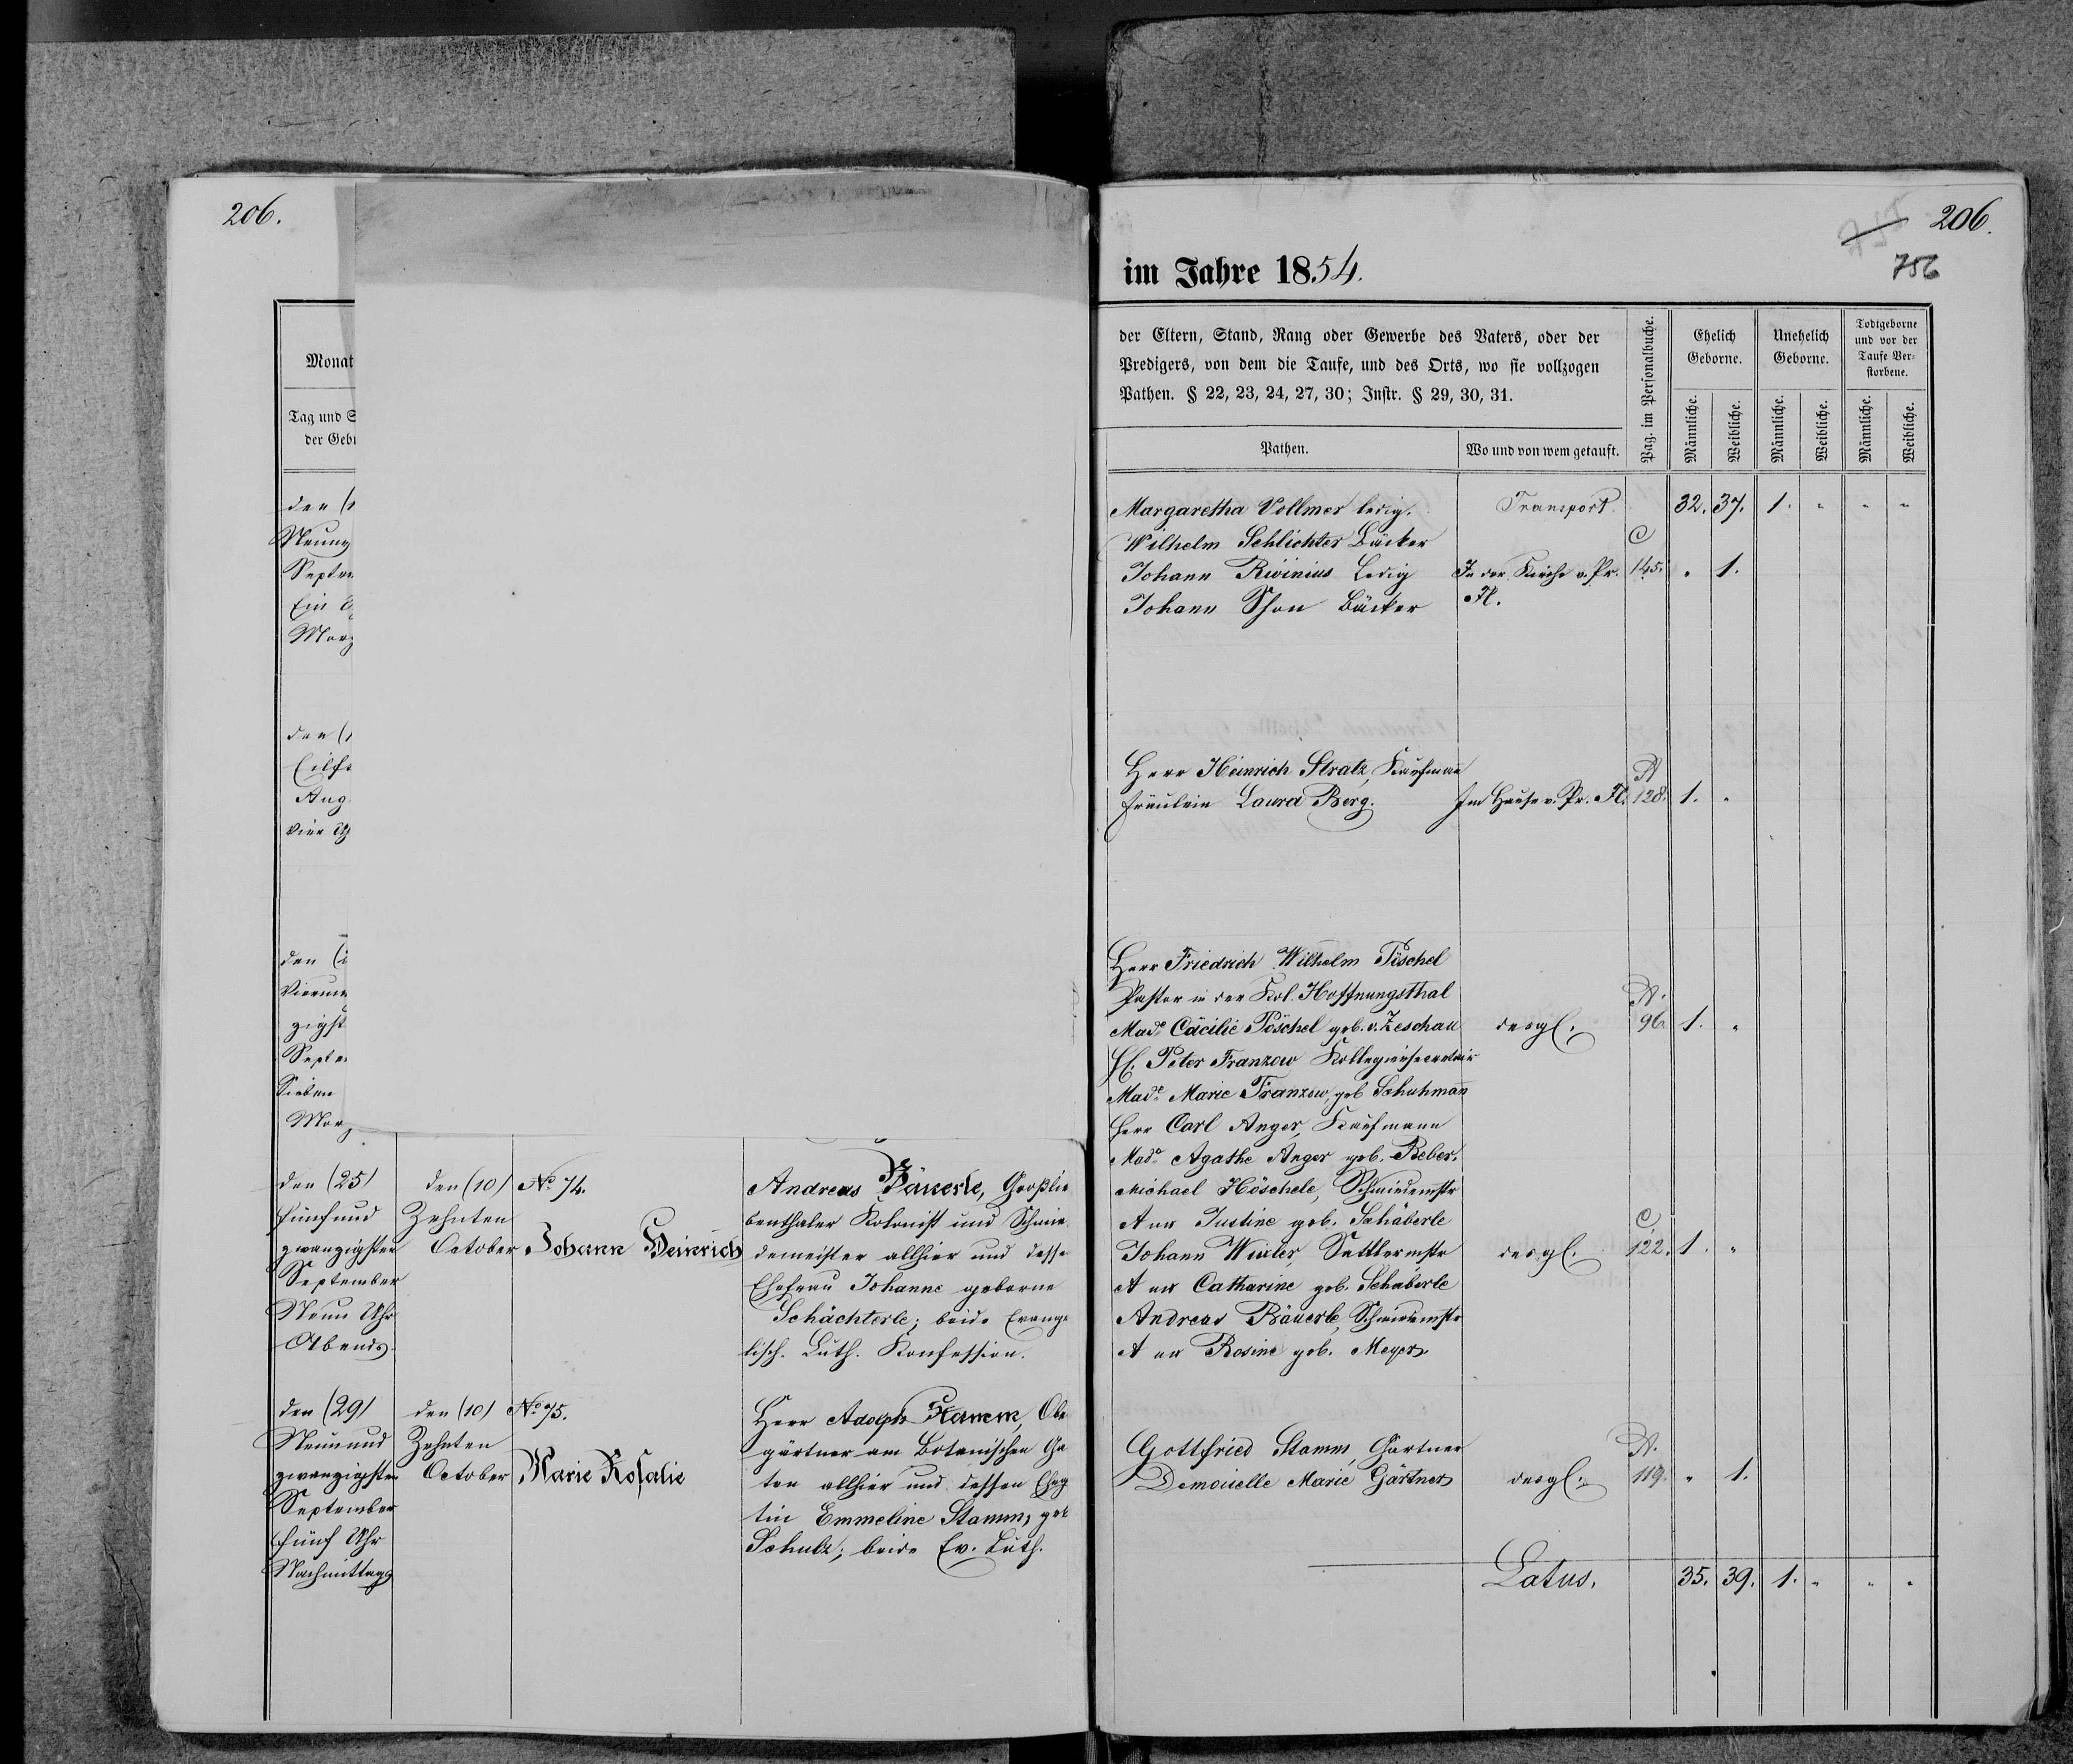 206.
Monat
Tag und S
der Gebu
den (1
Neunz
Septem
Ein U
Morg
den (1
Eilft
Aug
vier Uh
den (2
Vierun
zigst
Septe
Sieben
Morg
den (25)
fünfund
zwanzigsten
September
Neun Uhr
Abends.
den (10)
Zehnten
October
No 74.
Johann Heinrich
Andreas Bäuerle, Großlie
benthaler Kolonist und Schmie
demeister allhier und desse
Ehefrau Johanne geborne
Schächterle; beide Evange
lisch. Luth. Konfession.
den (29)
Neunund
zwanzigsten
September
fünf Uhr
Nachmittags
den (10)
Zehnten
October
No 75.
Marie Rosalie
Herr Adolph Stamm, Obe
gärtner am Botanischen Ga
ten allhier und dessen Eheg
tin Emmeline Stamm, geb
Schulz; beide Ev. Luth.
206.
756
im Jahre 1854.
der Eltern, Stand, Rang oder Gewerbe des Vaters, oder der
Predigers, von dem die Taufe, und des Orts, wo sie vollzogen
Pathen. § 22, 23, 24, 27, 30; Instr. § 29, 30, 31.
Pathen.
Wo und von wem getauft.
Pag. im Personalbuche.
Ehelich
Geborne.
Unehelich
Geborne.
Todtgeborne
und vor der
Taufe Ver-
storbene.
Männliche.
Weibliche.
Männliche.
Weibliche.
Männliche.
Weibliche.
Transport. 32. 37. 1. " " "
Margaretha Vollmer ledig.
Wilhelm Schlichter Bäcker
Johann Rivinius Ledig
Johann Bäcker
In der Kirche v. Pr.
Fl.
C
145. " 1.
Herr Heinrich Stratz, Kaufmann
Fräulein Laura Berg.
Im Hause v. Pr. Fl.
A
128. 1. "
Herr Friedrich Wilhelm Pöschel
Pastor in der Kol. Hoffnungsthal
Made Cäcilie Pöschel geb. v. Zeschau
H. Peter Franzow Kollegiensecretair
Made Marie Franzow, geb Schuhmann
Herr Carl Anger, Kaufmann
Made Agathe Anger geb. Reber.
desgl.
A.
96. 1. "
Michael Höschele, Schmiedemstr
A ux Justine geb. Schäberle
Johann Winter, Sattlermstr
A ux Catharine geb. Schäberle
Andreas Bäuerle, Schmiedemstr
A ux Rosine geb. Meyer
desgl.
C
122. 1. "
Gottfried Stamm, Gärtner
Demoiselle Marie Gärtner
desgl.
A.
119. " 1.
Latus. 35. 39. 1. " " "